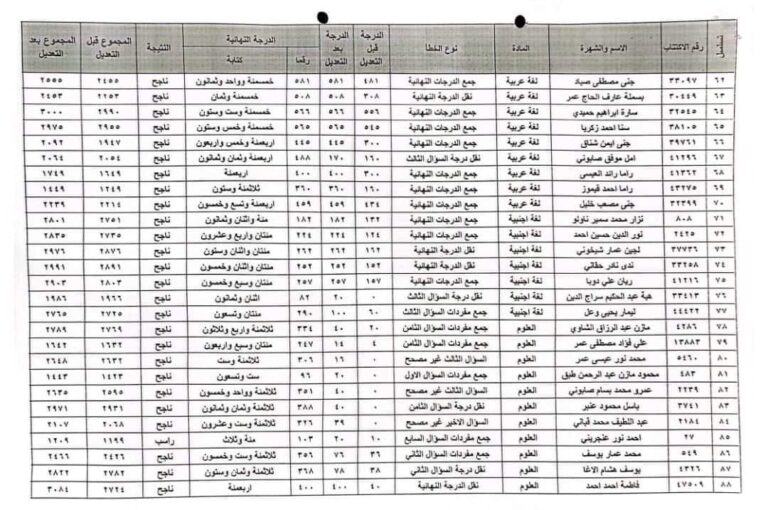 تسلسل رقم الاكتتاب الاسم والشهرة المادة نوع الخطأ الدرجة قبل الدرجة بعد الدرجة النهائية رقما كتابة النتيجة المجموع قبل التعديل المجموع بعد التعديل
٦٢ ٣٣٠٩٧ جنى مصطفى صياد لغة عربية جمع الدرجات النهائية ٤٨١ ٥٨١ ٥٨١ خمسمئة وواحد وثمانون ناجح ٢٤٥٥ ٢٥٥٥
٦٣ ٣٠٤٤٩ بسملة عارف الحاج عمر لغة عربية نقل الدرجة النهائية ٣٠٨ ٥٠٨ ٥٠٨ خمسمئة وثمان ناجح ٢٢٥٣ ٢٤٥٣
٦٤ ٣٢٥٤٥ سارة ابراهيم حميدي لغة عربية جمع الدرجات النهائية ٥٥٦ ٥٦٦ ٥٦٦ خمسمئة وست وستون ناجح ٢٩٩٠ ٣٠٠٠
٦٥ ٣٨١٠٥ سنا احمد زكريا لغة عربية جمع الدرجات النهائية ٥٤٥ ٥٦٥ ٥٦٥ خمسمئة وخمس وستون ناجح ٢٩٥٥ ٢٩٧٥
٦٦ ٣٩٧٦١ جنى ايمن شناق لغة عربية جمع الدرجات النهائية ٣٠٠ ٤٤٥ ٤٤٥ اربعمئة وخمس واربعون ناجح ١٩٤٧ ٢٠٩٢
٦٧ ٤١٢٩٦ امل موفق صابوني لغة عربية نقل درجة السؤال الثالث ١٦٠ ١٧٠ ٤٨٨ اربعمئة وثمان وثمانون ناجح ٢٠٥٤ ٢٠٦٤
٦٨ ٤١٣٦٢ راما رائد العيسى لغة عربية جمع الدرجات النهائية ٣٠٠ ٤٠٠ ٤٠٠ اربعمئة ناجح ١٦٤٩ ١٧٤٩
٦٩ ٤٣٢٧٥ راما احمد قيموز لغة عربية نقل الدرجة النهائية ١٦٠ ٣٦٠ ٣٦٠ ثلاثمئة وستون ناجح ١٢٤٩ ١٤٤٩
٧٠ ٣٢٣٩٩ جنى مصعب خليل لغة عربية جمع الدرجات النهائية ٤٣٤ ٤٥٩ ٤٥٩ اربعمئة وتسع وخمسون ناجح ٢٢١٤ ٢٢٣٩
٧١ ٨٠٨ نزار محمد سمير ناولو لغة اجنبية جمع الدرجات النهائية ١٣٢ ١٨٢ ١٨٢ مئة واثنان وثمانون ناجح ٢٧٥١ ٢٨٠١
٧٢ ٢٤٢٥ نور الدين حسين احمد لغة اجنبية جمع الدرجات النهائية ١٢٤ ٢٢٤ ٢٢٤ مئتان واربع وعشرون ناجح ٢٧٣٥ ٢٨٣٥
٧٣ ٣٧٧٣٦ لجين عمار شيخوني لغة اجنبية نقل الدرجة النهائية ١٦٢ ٢٦٢ ٢٦٢ مئتان واثنان وستون ناجح ٢٨٧٦ ٢٩٧٦
٧٤ ٣٣٢٥٨ ندى نادر حقاني لغة اجنبية نقل الدرجة النهائية ١٥٢ ٢٥٢ ٢٥٢ مئتان واثنان وخمسون ناجح ٢٨٩١ ٢٩٩١
٧٥ ٤١٢١٦ ريان علي دوبا لغة اجنبية جمع الدرجات النهائية ١٥٧ ٢٥٧ ٢٥٧ مئتان وسبع وخمسون ناجح ٢٨٠٣ ٢٩٠٣
٧٦ ٣٣٤١٣ هبة عبد الحكيم سراج الدين لغة اجنبية نقل درجة السؤال الثالث ٠ ٢٠ ٨٢ اثنان وثمانون ناجح ١٩٦٦ ١٩٨٦
٧٧ ٤٤٤٢٢ ليمار يحيى وعل لغة اجنبية جمع مفردات السؤال الثالث ٦٠ ١٠٠ ٢٩٠ مئتان وتسعون ناجح ٢٧٢٥ ٢٧٦٥
٧٨ ٤٢٨٦ مازن عبد الرزاق الشاوي العلوم جمع مفردات السؤال الثامن ٢٠ ٤٠ ٣٣٤ ثلاثمئة واربع وثلاثون ناجح ٢٧٦٩ ٢٧٨٩
٧٩ ١٣٨٨٣ علي فؤاد مصطفى عمر العلوم جمع مفردات السؤال الثامن ٤ ١٤ ٢٤٧ مئتان وسبع واربعون ناجح ١٦٣٢ ١٦٤٢
٨٠ ٥٤٦٠ محمد نور عيسى عمر العلوم السؤال الثالث غير مصحح ٠ ١٦ ٣٠٦ ثلاثمئة وست ناجح ٢٦٣٢ ٢٦٤٨
٨١ ٤٨٣ محمود مازن عبد الرحمن طبق العلوم جمع مفردات السؤال الاول ٠ ٢٠ ٩٦ ست وتسعون ناجح ١٤٢٣ ١٤٤٣
٨٢ ٢٢٣٩ عمرو محمد بسام صابوني العلوم السؤال الثالث غير مصحح ٠ ٤٠ ٣٥١ ثلاثمئة وواحد وخمسون ناجح ٢٥٩٥ ٢٦٣٥
٨٣ ٣٧٤١ باسل محمود عنبر العلوم نقل درجة السؤال الثامن ٠ ٤٠ ٣٨٨ ثلاثمئة وثمان وثمانون ناجح ٢٩٣١ ٢٩٧١
٨٤ ٢١٨٤ عبد اللطيف محمد قباني العلوم السؤال الاخير غير مصحح ٠ ٣٩ ٣٢٦ ثلاثمئة وست وعشرون ناجح ٢٠٦٨ ٢١٠٧
٨٥ ٢٧ احمد نور عنجريني العلوم جمع مفردات السؤال السابع ١٠ ٢٠ ١٠٣ مئة وثلاث راسب ١١٩٩ ١٢٠٩
٨٦ ٥٤٩ محمد عمار يوسف العلوم جمع مفردات السؤال الثاني ٣٦ ٧٦ ٣٥٦ ثلاثمئة وست وخمسون ناجح ٢٤٢٦ ٢٤٦٦
٨٧ ٤٣٢٦ يوسف هشام الاغا العلوم نقل درجة السؤال الثاني ٣٨ ٧٨ ٣٦٨ ثلاثمئة وثمان وستون ناجح ٢٧٨٢ ٢٨٢٢
٨٨ ٤٧٥٠٩ فاطمة احمد احمد العلوم نقل الدرجة النهائية ٤٠ ٤٠٠ ٤٠٠ اربعمئة ناجح ٢٧٢٤ ٣٠٨٤